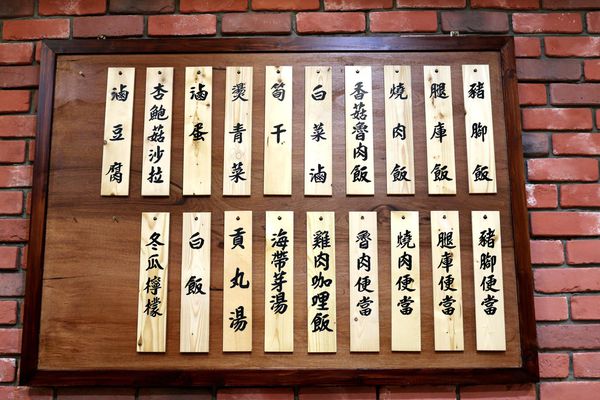 豬腳飯
腿庫飯
燒肉飯
香菇魯肉飯
白菜滷
筍干
燙青菜
滷蛋
杏鮑菇沙拉
滷豆腐
豬腳便當
腿庫便當
燒肉便當
魯肉便當
雞肉咖哩飯
海帶芽湯
貢丸湯
白飯
冬瓜檸檬